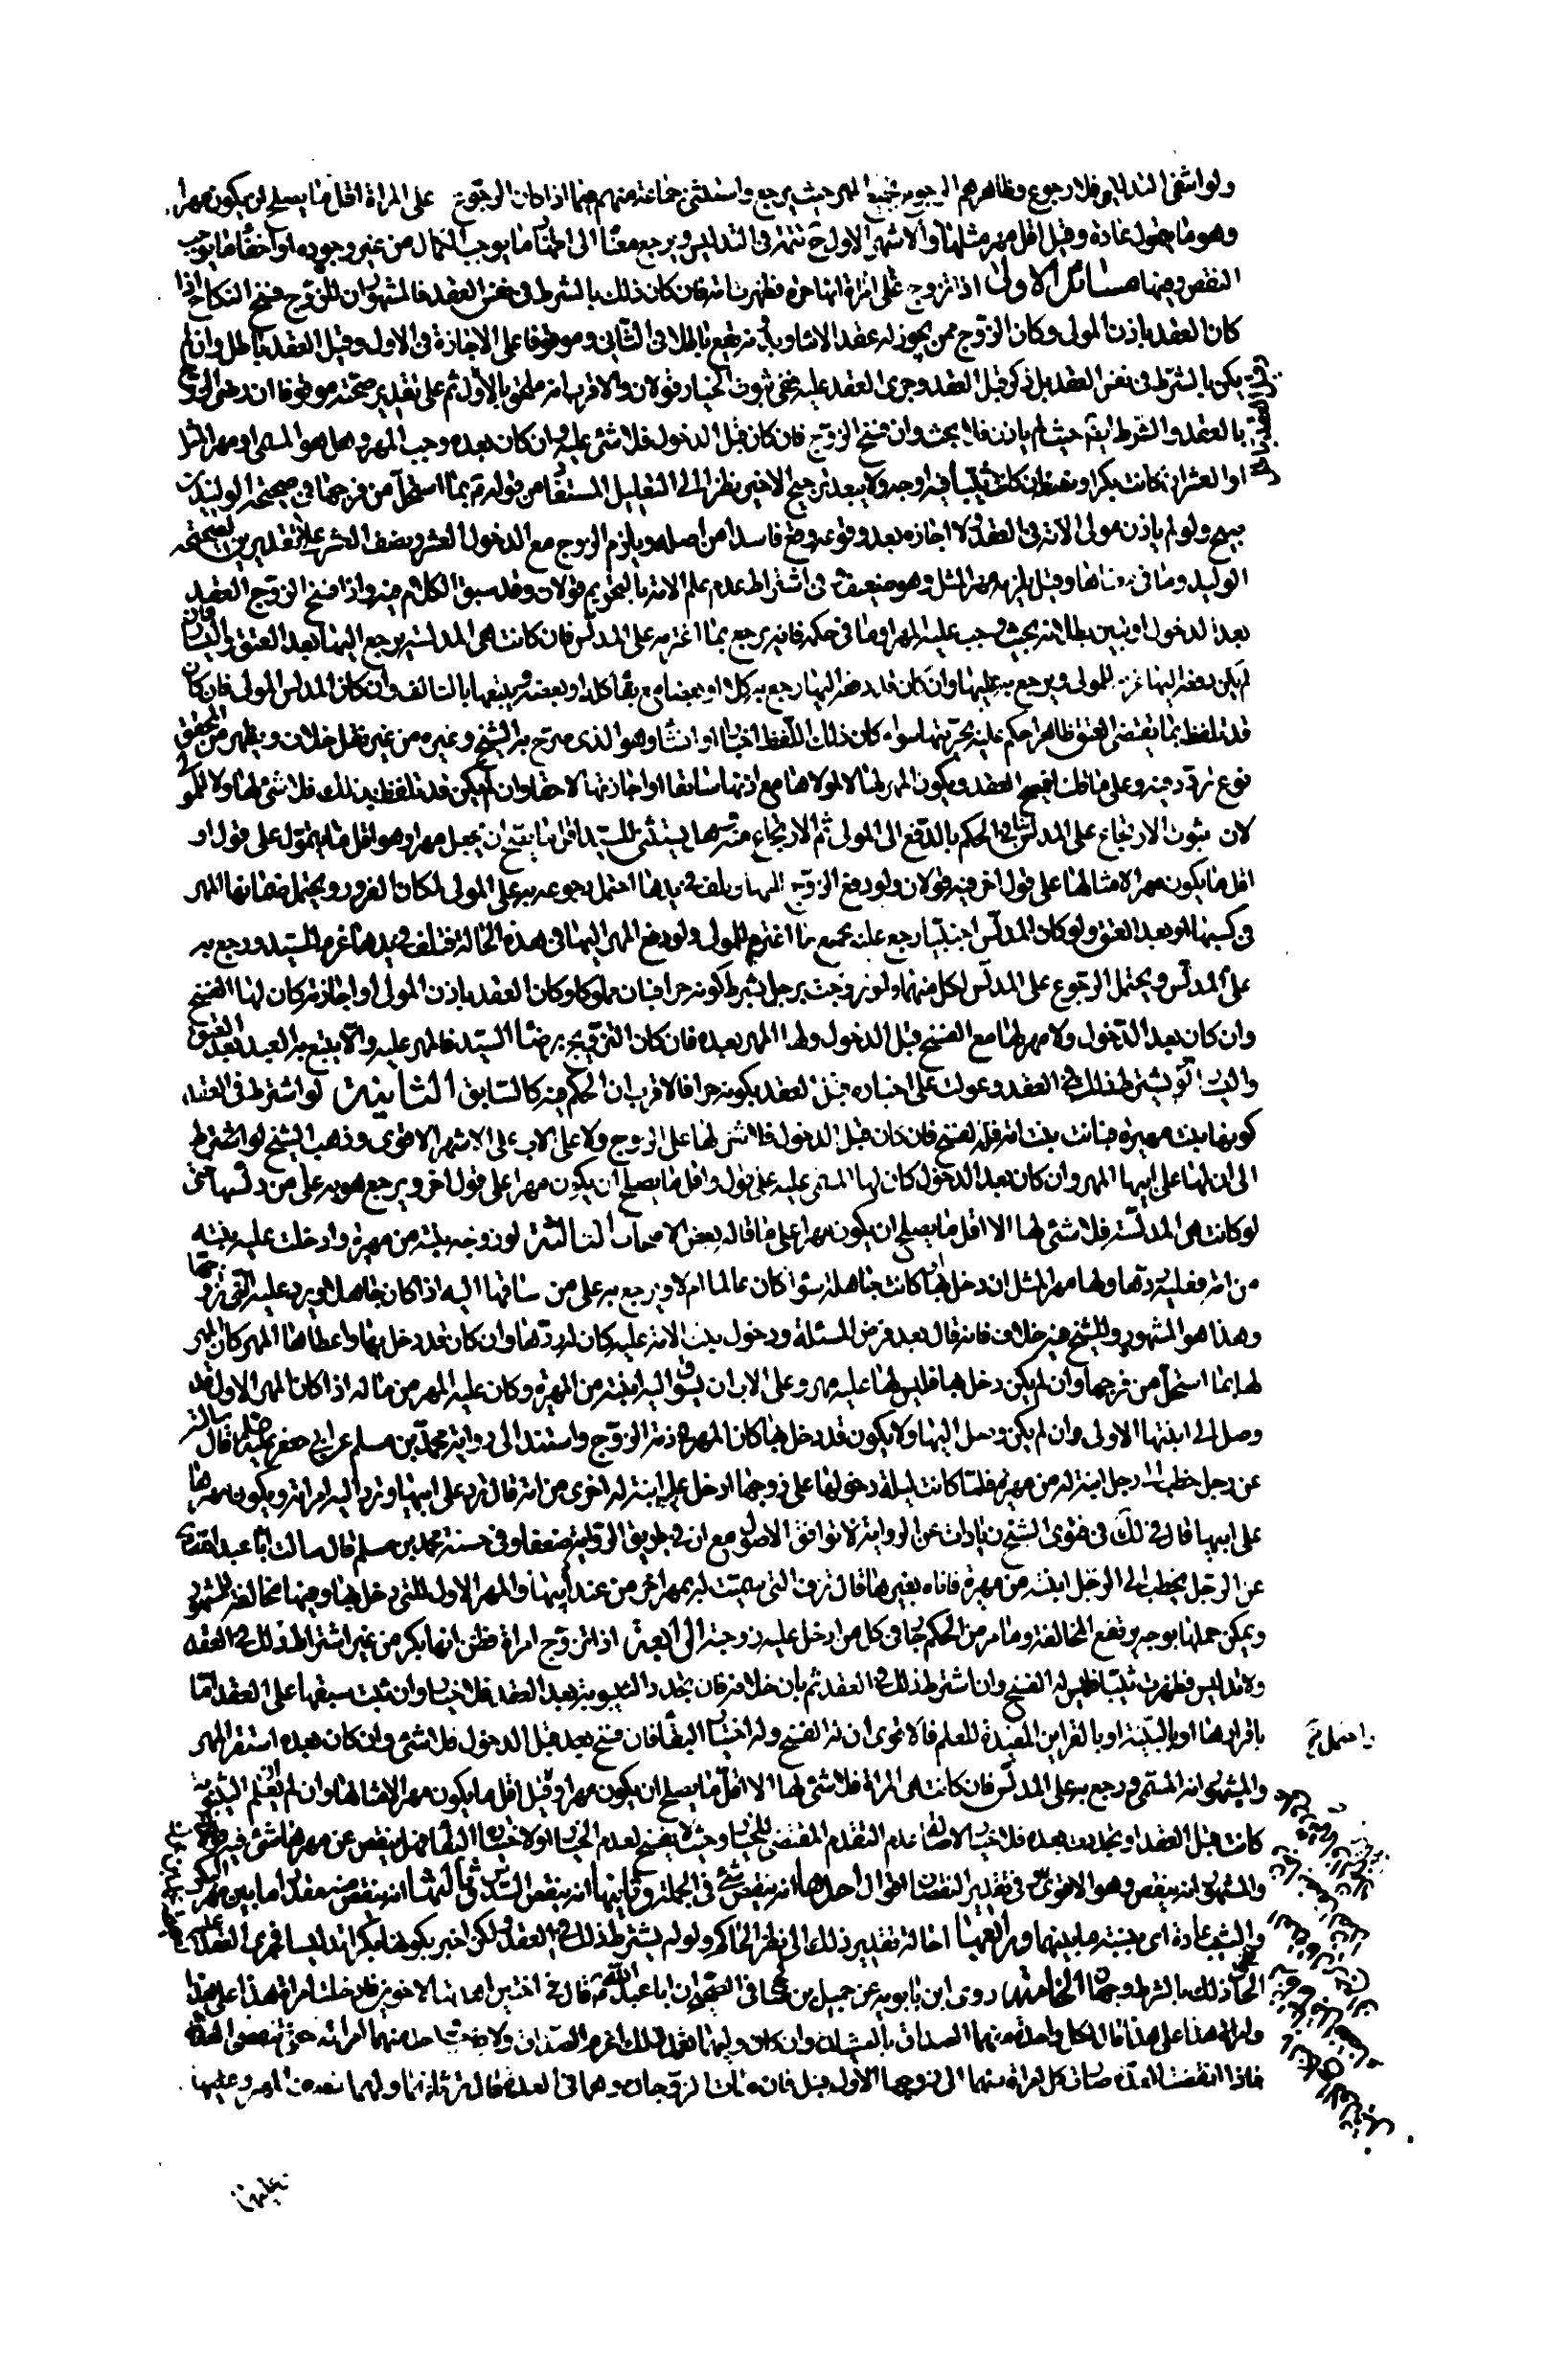 ولو انتفى التدليس فلا رجوع وظاهرهم الرجوع بجميع المهر حيث يرجع واستثنى جماعة منهم فيما اذا كان الرجوع على المراة اقل ما يصلح ان يكون مهرا
وهو ما يتمول عادة وقيل اقل مهر مثلها والاشهر الاول ثم التدليس ويرجع معنا الى اظهار ما يوجب الكمال من غير وجوده او اخفاء ما يوجب
النقص وفيها مسائل الاولى اذا تزوج على امراة انها حرة فظهرت امة فان كان ذلك بالشرط في نفس العقد فالمشهور ان للزوج فسخ النكاح اذا
كان العقد باذن المولى وكان الزوج ممن يجوز له عقد الاماء وبدونه يقع باطلا في الثاني وموقوفا على الاجازة في الاول وقيل العقد باطل وان لم
يكن بالشرط في نفس العقد بل ذكر قبل العقد وجرى العقد عليه ففي ثبوت الخيار قولان والاقرب انه ملحق بالاول ثم على تقدير صحته موقوفا ان رضى الزوج
بالعقد والشرط حيث لم ياذن فلا بحث وان فسخ الزوج فان كان قبل الدخول فلا شئ عليه وان كان بعده وجب المهر وهل هو المسمى او مهر المثل
او العشر ان كانت بكرا ونصفه ان كانت ثيبا فيه اوجه ولا يبعد ترجيح الاخير نظرا الى التعليل المستفاد من قوله بما استحل من فرجها في صحيحة الوليد بن
صبيح ولو لم ياذن مولى الامة في العقد ولا اجازه بعد وقوعه وقع فاسدا من اصله ويلزم الزوج مع الدخول العشر ونصف العشر على التقديرين لصحيحة
الوليد وما في معناها وقيل يلزمه مهر المثل وهو ضعيف وفي اشتراط عدم علم الامة بالتحريم قولان وقد سبق الكلام فيه واذا فسخ الزوج العقد
بعد الدخول او تبين بطلانه بحيث وجب عليه المهر او ما في حكمه فانه يرجع بما اغترمه على المدلس فان كانت هى المدلسة يرجع اليها بعد العتق واليسار فان
لم يكن دفعه اليها غرمه للمولى ويرجع به عليها وان كان قد دفعه اليها رجع به كله او بعضه مع بقاء كله او بعضه ويتبعها بالتالف وان كان المدلس المولى فان كان
قد تلفظ بما يقتضى العتق ظاهرا حكم عليه بحريتها سواء كان ذلك اللفظ اخبارا او انشاء وهو الذى صرح به الشيخ وغيره من غير نقل خلاف ويظهر من المحقق
نوع تردد فيه وعلى ما قلنا فيصح العقد ويكون المهر لها لا لمولاها مع اذنها سابقا او اجازتها لاحقا وان لم يكن قد تلفظ بذلك فلا شئ لها ولا للمولى
لان ثبوت الارتجاع على المدلس ينافي الحكم بالدفع الى المولى ثم الارتجاع منه وهل يستثنى للسيد اقل ما يصح ان يجعل مهرا وهو اقل ما يتمول على قول او
اقل ما يكون مهرا لامثالها على قول اخر فيه قولان ولو دفع الزوج المهر اليها وتلف في يدها احتمل رجوعه به على المولى لمكان الغرور ويحتمل ضمانها المهر
في كسبها او بعد العتق ولو كان المدلس اجنبيا رجع عليه بجميع ما اغترمه للمولى ولو دفع المهر اليها في هذه الحالة فتلف في يدها غرم للسيد ورجع به
على المدلس ويحتمل الرجوع على المدلس لكل منهما ولو تزوجت برجل بشرط كونه حرا فبان مملوكا وكان العقد باذن المولى او اجازته كان لها الفسخ
وان كان بعد الدخول ولا مهر لها مع الفسخ قبل الدخول ولها المهر بعده فان كان التزويج برضا السيد فالمهر عليه والا يتبع به العبد بعد العتق
واليسار ولو لم يشترط ذلك في العقد وعولت على اخباره قبل العقد بكونه حرا فالاقرب ان الحكم فيه كالسابق الثانية لو اشترط في العقد
كونها بنت مهيرة فبانت بنت امة فله الفسخ فان كان قبل الدخول فلا شئ لها على الزوج ولا على الاب على الاشهر الاقوى وذهب الشيخ لو اشترط
الى ان لها على ابيها المهر وان كان بعد الدخول كان لها المسمى عليه على قول واقل ما يصلح ان يكون مهرا على قول اخر ويرجع هو به على من دلسها حتى
لو كانت هى المدلسة فلا شئ لها الا اقل ما يصلح ان يكون مهرا على ما قاله بعض الاصحاب الثالثة لو زوجه بنته من مهيرة وادخلت عليه بنته
من امة فعليه ردها ولها مهر المثل ان دخل بها ان كانت جاهلة سواء كان عالما ام لا ويرجع به على من ساقها اليه اذا كان جاهلا ويرد عليه التى تزوجها
وهذا هو المشهور وللشيخ فيه خلاف فانه قال بعد فرض المسئلة ودخول بنت الامة عليه كان له ردها وان كان قد دخل بها واعطاها المهر كان المهر
لها بما استحل من فرجها وان لم يكن دخل بها فليس لها عليه مهر وعلى الاب ان يسوق اليه ابنته من المهيرة وكان عليه المهر من ماله اذا كان المهر الاول قد
وصل الى ابنتها الاولى وان لم يكن وصل اليها ولا يكون قد دخل بها كان المهر في ذمة الزوج واستند الى رواية محمد بن مسلم عن ابي جعفر عليه السلام قال سالته
عن رجل خطب الى رجل ابنة له من مهيرة فلما كانت ليلة دخولها على زوجها ادخل عليه ابنة له اخرى من امة قال ترد على ابيها وترد اليه امراته ويكون مهرها
على ابيها قال في ذلك في فتوى الشيخ زيادات عن الرواية لا توافق الاصول مع ان في طريق الرواية ضعفا وفي حسنة محمد بن مسلم قال سالت ابا عبد الله
عن الرجل يخطب الى الرجل ابنته من مهيرة فاتاه بغيرها قال تزف التى سميت له بمهر اخر من عند ابيها والمهر الاول للتى دخل بها وفيها مخالفة للمشهور
ويمكن حملها بوجه يرتفع المخالفة وما مر من الحكم جار في كل من ادخل عليه غير زوجته الرابعة اذا تزوج امراة ظن انها بكر من غير اشتراط ذلك في العقد
ولا تدليس فظهرت ثيبا فليس له الفسخ وان اشترط ذلك في العقد ثم بان خلافه فان تجدد الثيبوبة بعد العقد فلا خيار وان ثبت سبقها على العقد اما
باقرارها او بالبينة او بالقراين المفيدة للعلم فالاقوى ان له الفسخ وله اختيار البقاء فان فسخ بعد قبل الدخول فلا شئ وان كان بعده استقر المهر
والمشهور انه المسمى ورجع به على المدلس فان كانت هى المراة فلا شئ لها الا اقل ما يصلح ان يكون مهرا وقيل اقل ما يكون مهرا لامثالها وان لم يعلم الثيبوبة
كانت قبل العقد او تجددت بعده فلا خيار لاصالة عدم التقدم المقتضى للخيار وحيث لا يفسخ لعدم الخيار او لاختياره البقاء فهل ينقص عن مهرها شئ فيه
والمشهور انه ينقص وهو الاقوى وفي تقدير النقصان اقوال احدها انه ينقص شئ في الجملة وثانيها انه ينقص السدس وثالثها انه ينقص منه مقدار ما بين مهر البكر
والثيب عادة اى بنسبة ما بينهما ورابعها احالة تقدير ذلك الى نظر الحاكم ولو لم يشترط ذلك في العقد ولكن اخبر بكونها بكرا تدليسا فجرى العقد على
ذلك بالشرط وجهان الخامسة روى ابن بابويه عن جميل بن صالح في الصحيح ان ابا عبد الله قال في اختين اهديتا لاخوين فادخلت امراة هذا على هذا
وامراة هذا على هذا قال لكل واحدة منهما الصداق بالغشيان وان كان وليهما تعمد ذلك اغرم الصداق ولا يقرب واحد منهما امراته حتى تنقضى العدة
فاذا انقضت العدة صارت كل امراة منهما الى زوجها الاول قيل فان ماتتا الزوجان وهما في العدة قال ترثانهما ولهما نصف المهر وعليهما